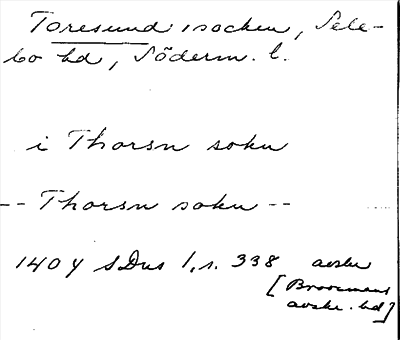 Toresund socken, Sele-
bo hd, Söderm. l.
i Thorsn sokn
-- Thorsn sokn --
1404 SDns 1, s. 338 avskr
[Broocmans
avskr. bd]